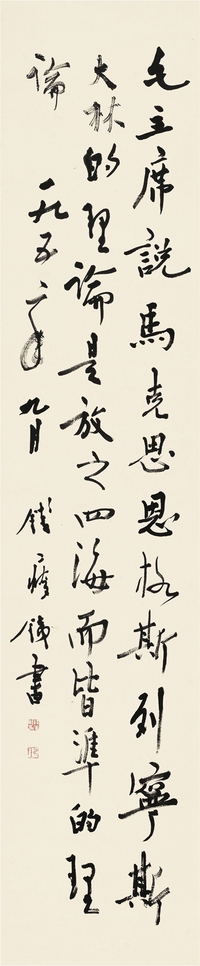 毛主席說馬克思恩格斯列寧斯
大林的理論是放之四海而皆準的理
論 一九五二年九月 錢瘦鐵書